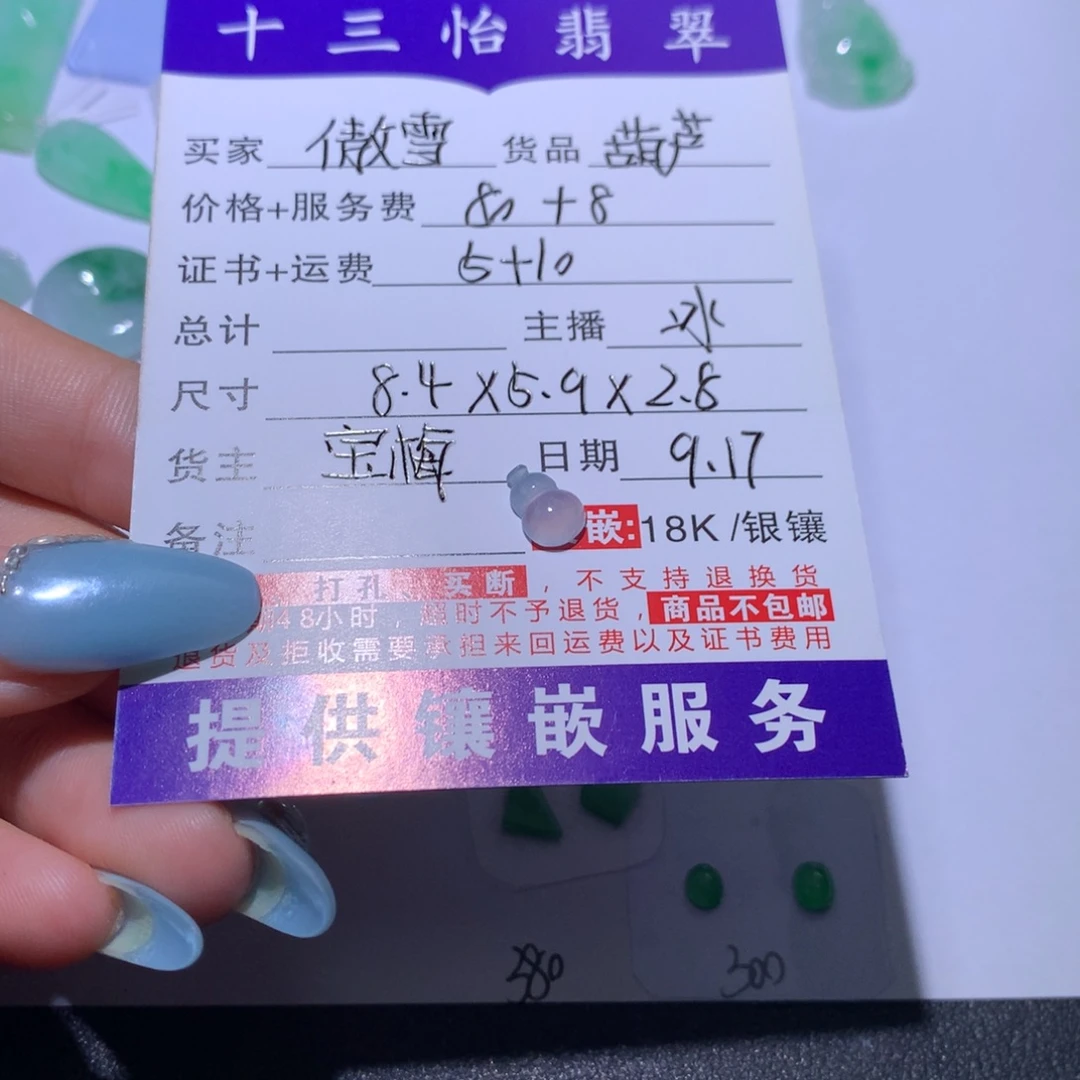 十三怡翡翠
买家 傲雪 货品 葫芦
价格+服务费 80+8
证书+运费 5+10
总计 主播 冰
尺寸 8.4×5.9×2.8
货主 宝梅 日期 9.17
备注 嵌:18K/银镶
打孔 买断,不支持退换货
48小时,超时不予退货,商品不包邮
退货及拒收需要承担来回运费以及证书费用
提供镶嵌服务
380 300